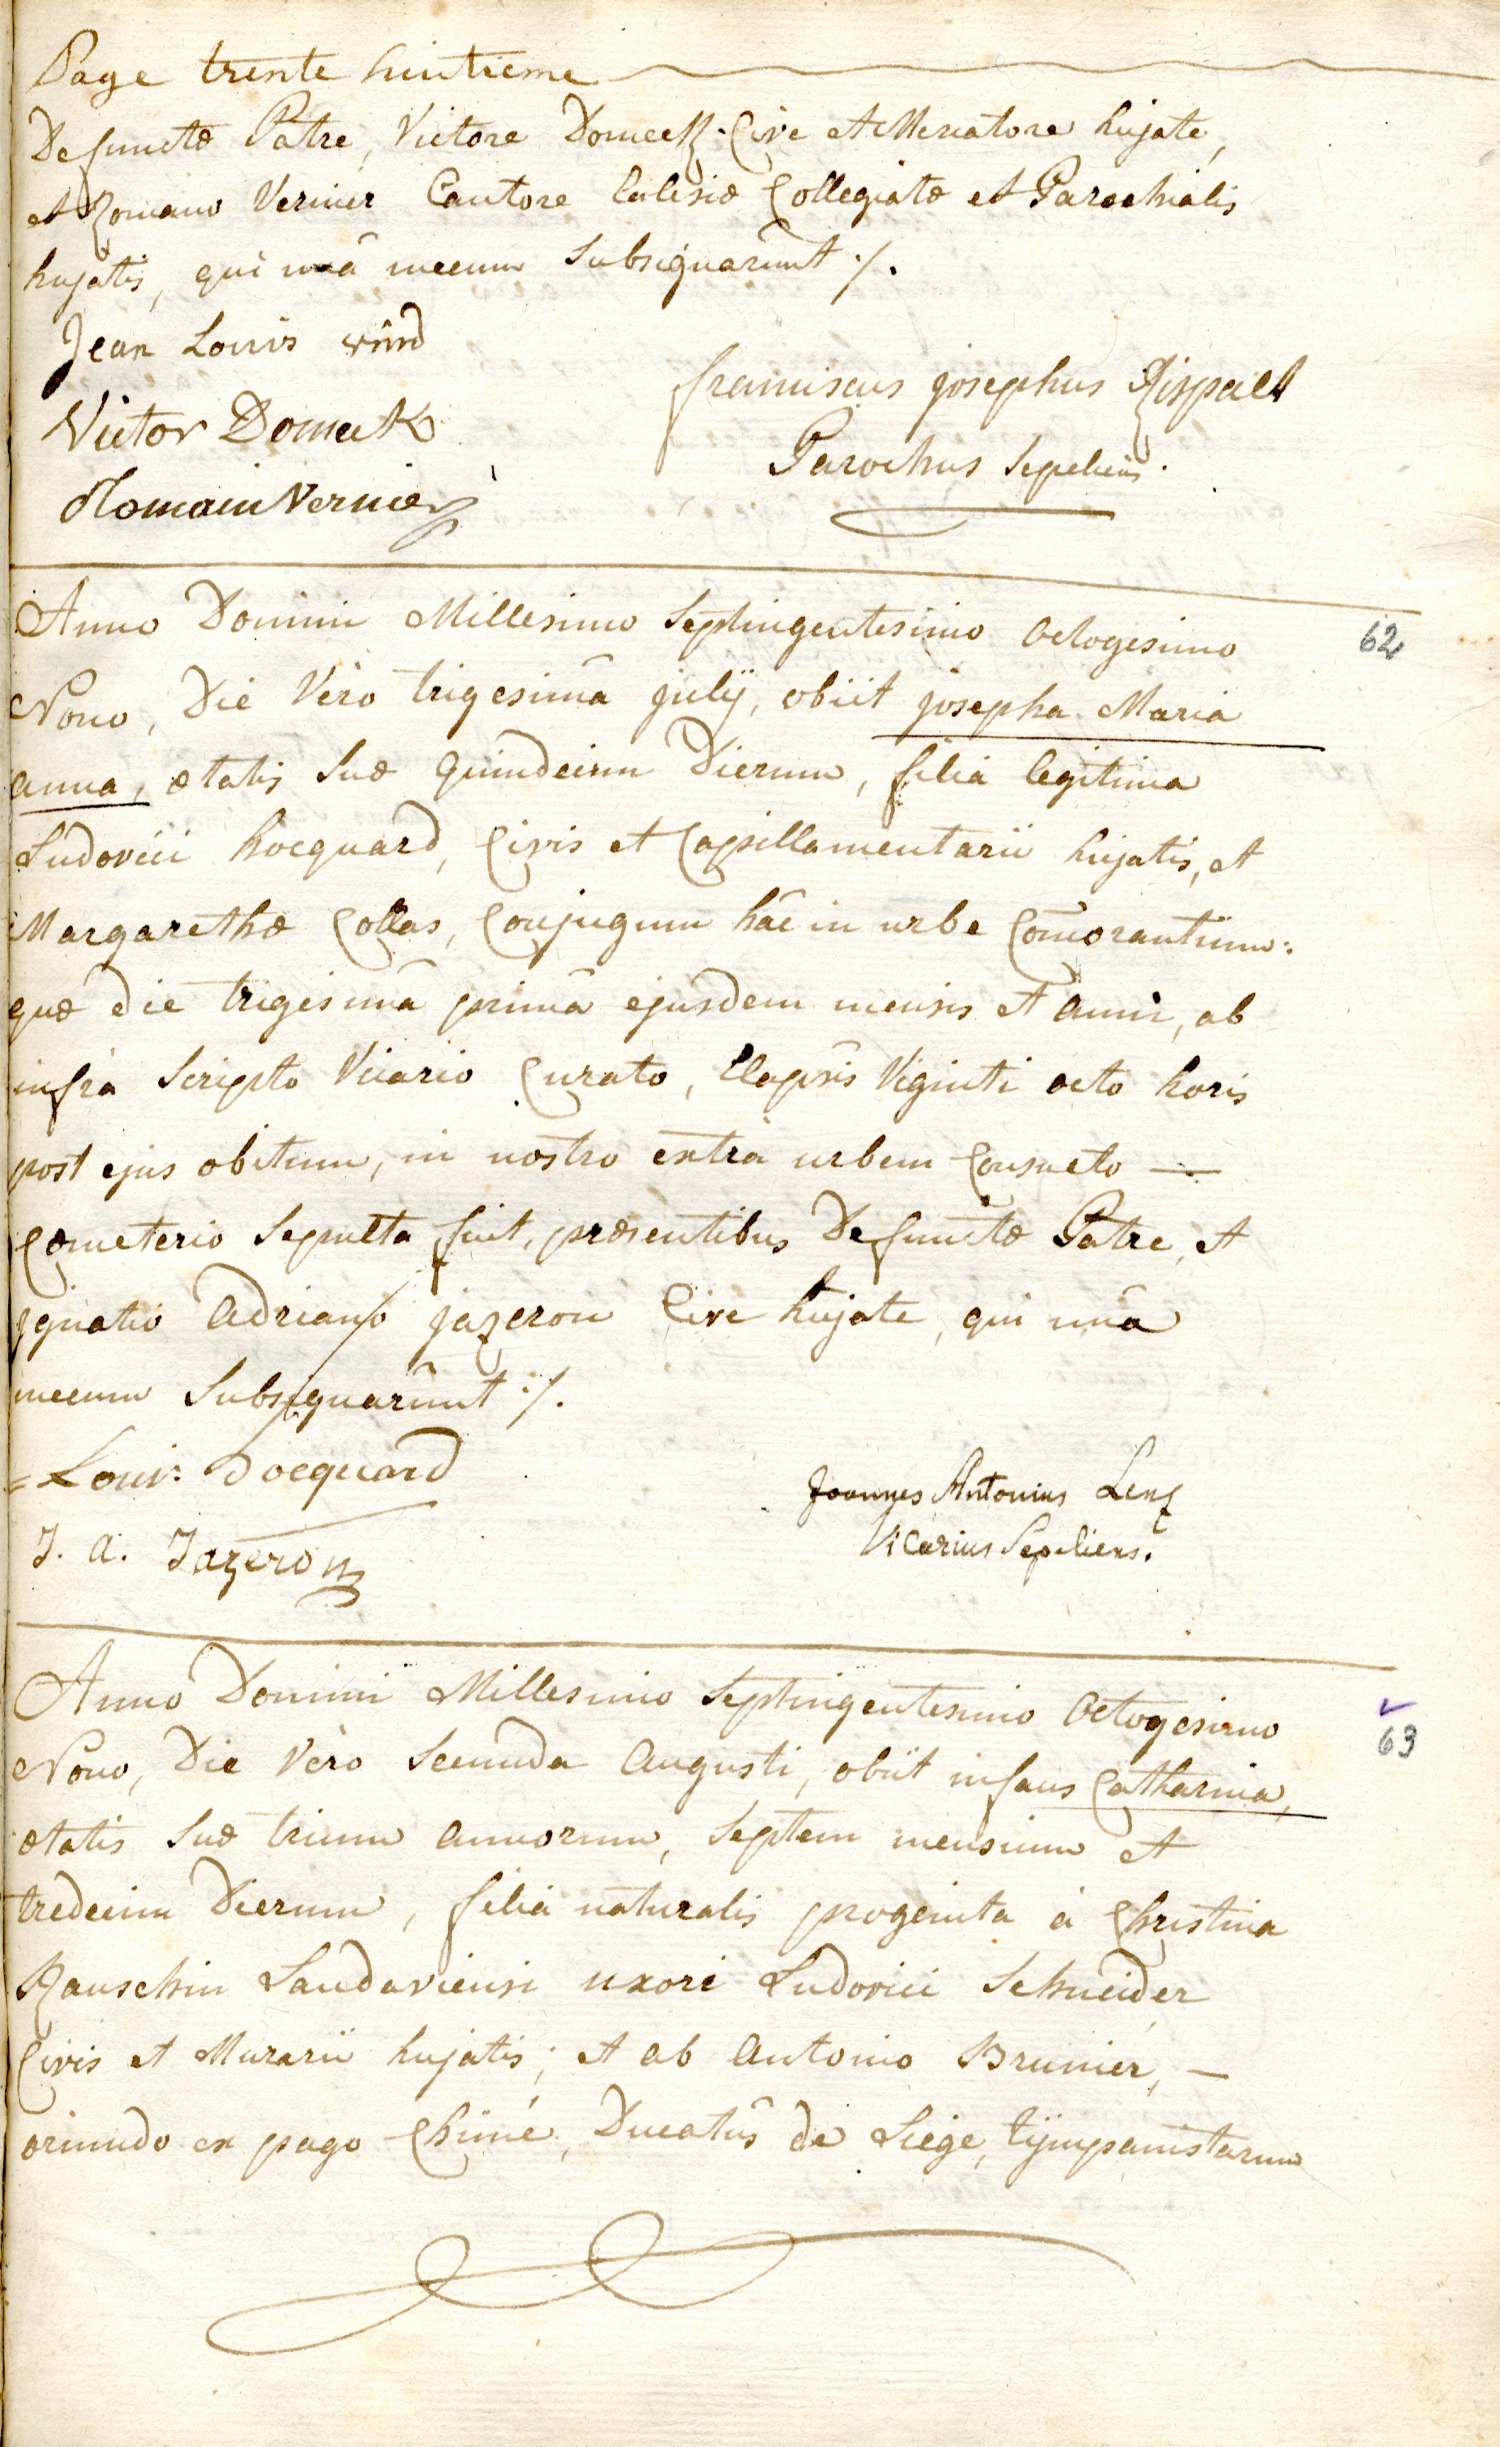 Page trente huitieme
Defunctæ Patre, Victore Domeck Cive et Mercatore hujate,
et Romano Vernier Cantore Eclesiæ Collegiatæ et Parochialis
hujatis, qui unâ mecum Subsignarûnt ·/.
Jean Louis wind
Victor Domeck
Romain Vernier
franciscus josephus
Parochus Sepeliens.
Anno Domini Millesimo Septingentesimo Octogesimo
62
Nono, Die Vero trigesimâ julÿ, obiit josepha Maria
anna, ætatis Suæ Quindecim Dierum, filia legitima
Ludovici hocquard, Civis et Capillamentarii hujatis, et
Margarethæ Collas, Conjugum hâc in urbe Com̄orantium:
quæ die trigesimâ primâ ejusdem mensis et anni, ab
infrà Scripto Vicario Curato, Elapsis Viginti octo horis
post ejus obitum, in nostro extrà urbem Consueto —
Cœmeterio Sepulta fuit, præsentibus Defunctæ Patre, et
jgnatio Adriano jazeron Cive hujate, qui unâ
mecum Subsignarûnt ·/.
= Louis hocquard
J. a. Jazeron
Joannes Antonius Lenz
Vicarius Sepeliens.
Anno Domini Millesimo Septingentesimo Octogesimo
63
Nono, Die Vero Secunda Augusti, obiit infans Catharina,
ætatis Suæ trium annorum, Septem mensium et
tredecim Dierum, filia naturalis progenita à Christina
Rauschin Landaviensi uxore Ludovici Schneider
Civis et Murarii hujatis; et ab Antonio Brunier, —
oriundo ex pago Chimé, Ducatûs de Liege, tÿmpanistarum